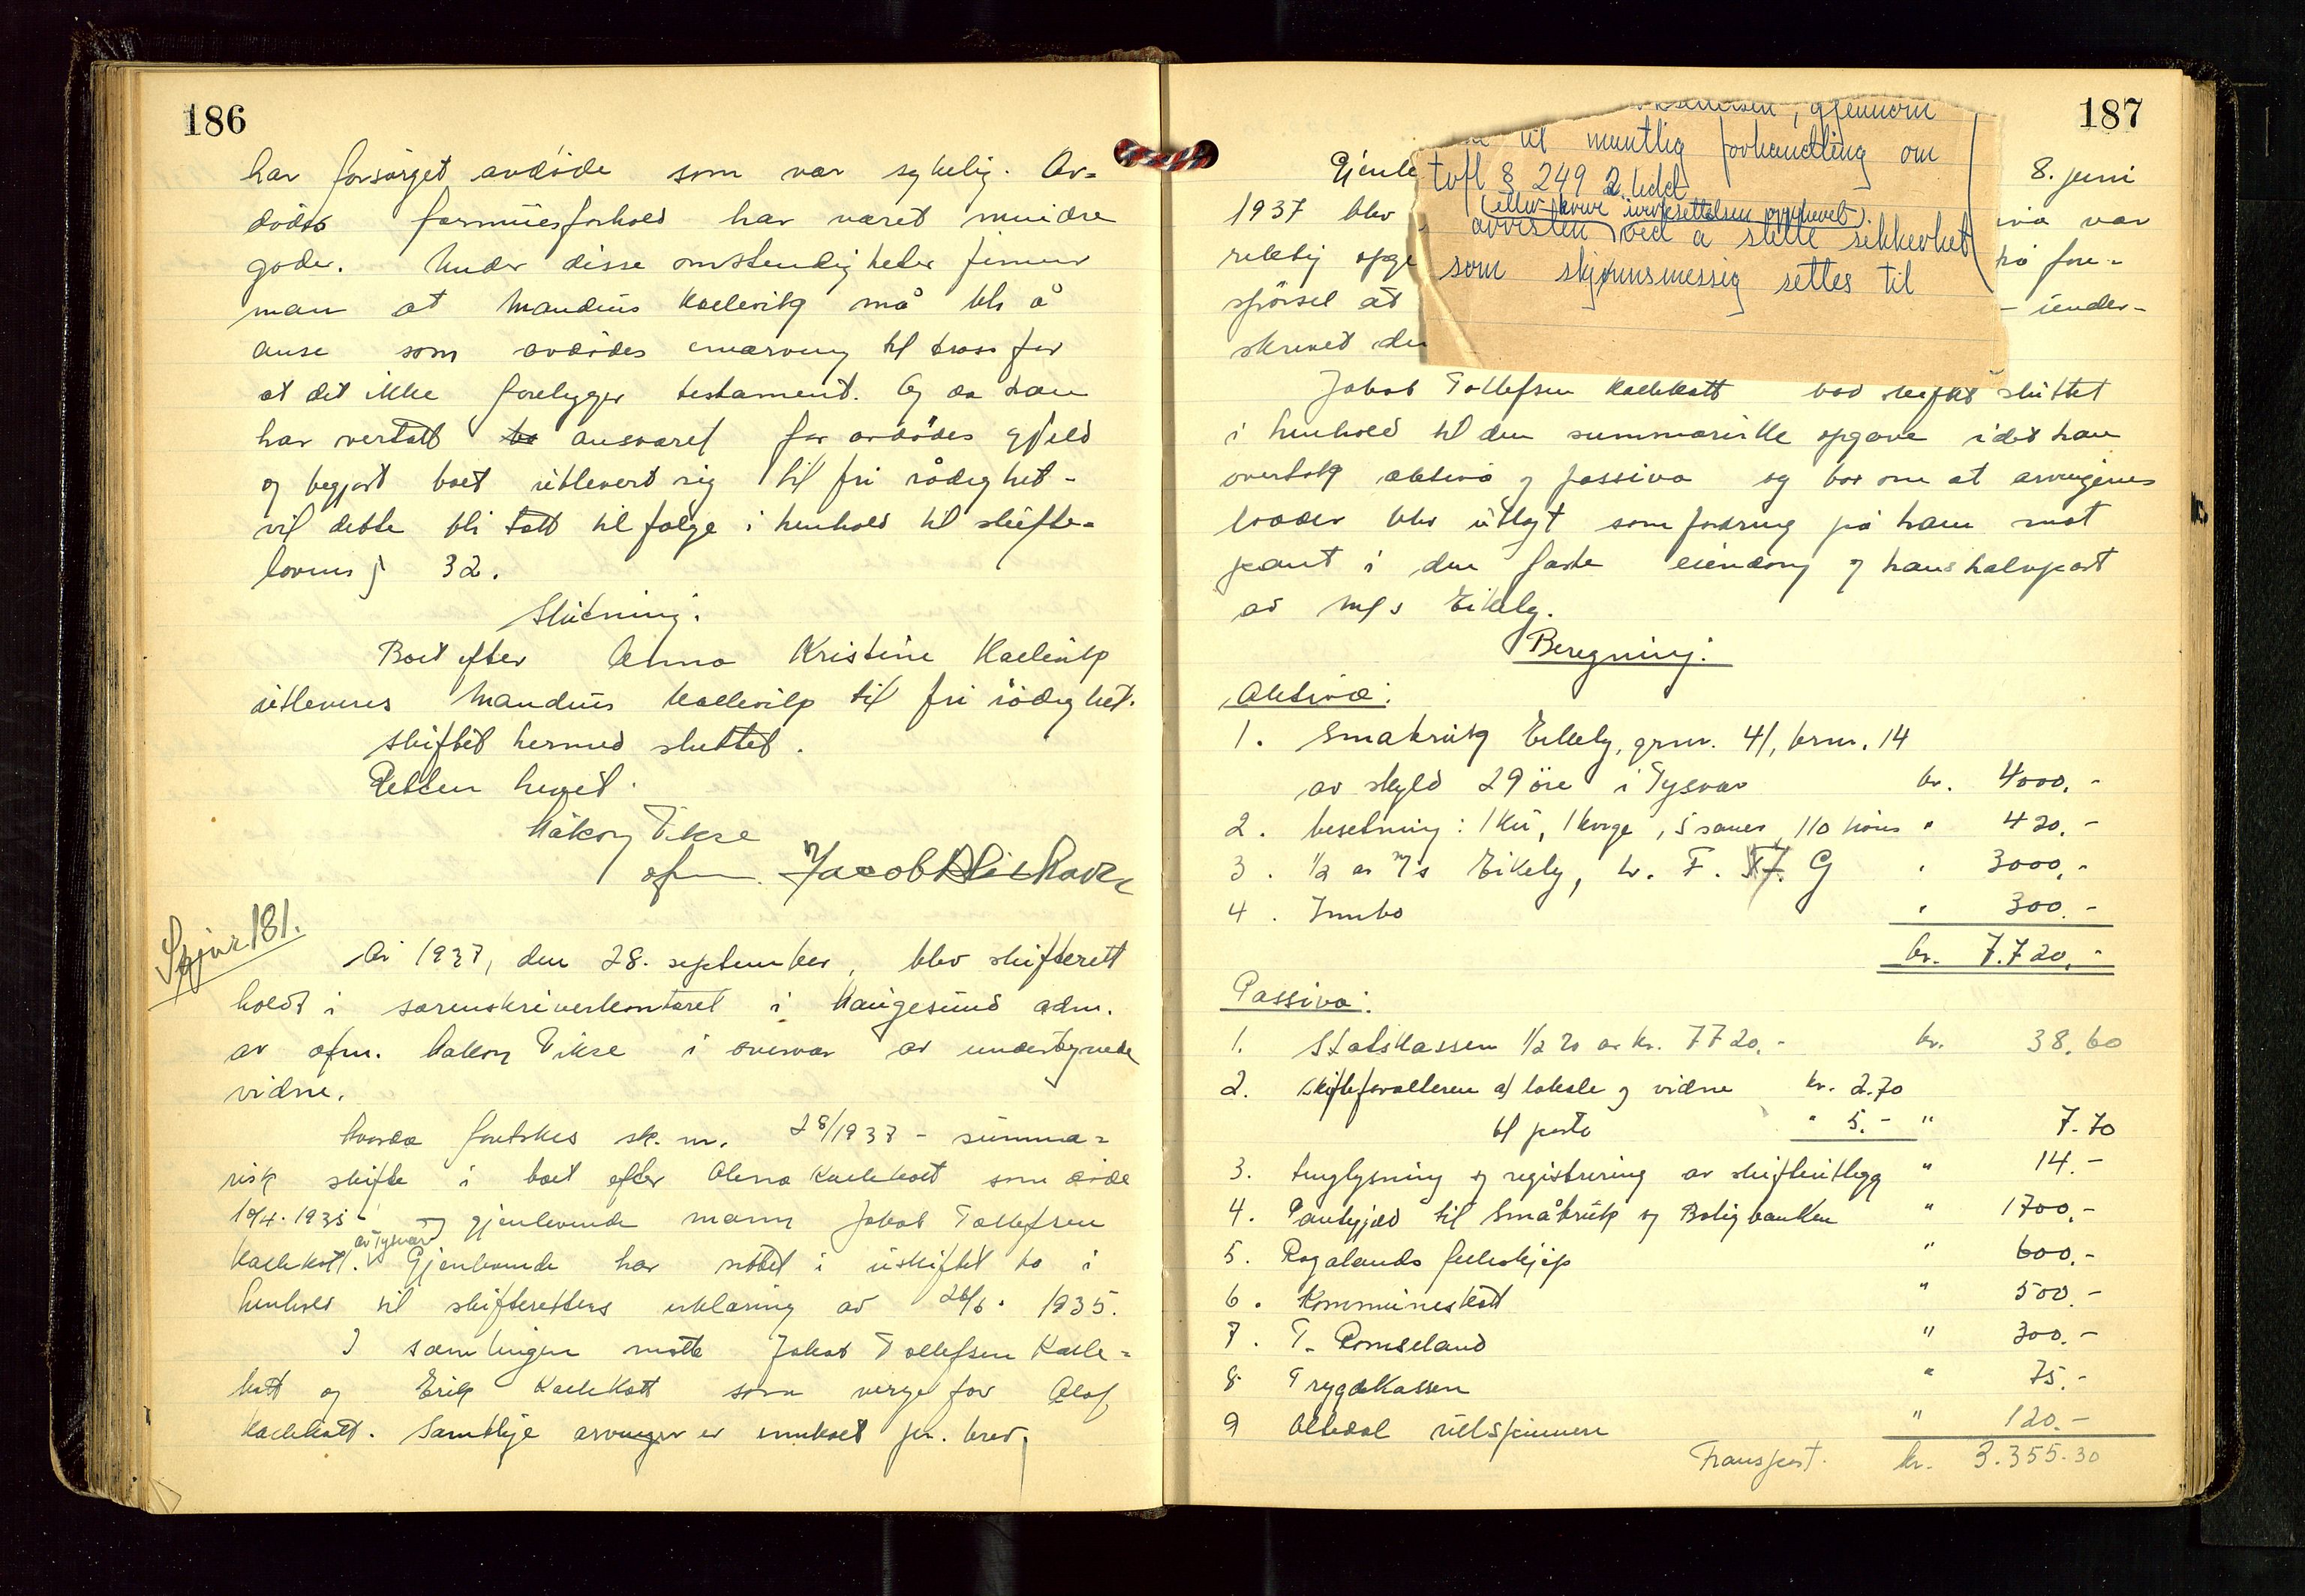 186
har forsørget avdøde som var sykelig. Av-
dødes formuesforhold har været mindre
goder. Under disse omstendigheter finner
man at Mandius Kallevik må bli å
anse som avdødes enearving til tross for
at det ikke foreligger testament. Og da han
har vertatt ansvaret for avdødes gjeld
og begjært boet utlevert sig til fri rådighet -
vil dette bli tatt til følge i henhold til skifte-
lovens § 32.
Slutning:
Boet efter Anna Kristine Kallevik
utleveres Mandius Kallevik til fri rådighet.
Skiftet hermed sluttet.
Retten hevet.
Håkon Vikse
ofm. Jacob
Spjur. 181.
År 1937, den 28. september, blev skifterett
holdt i sorenskriverkontoret i Haugesund adm.
av ofm. Håkon Vikse i overvær av undertegnede
vidne.
Hvorda foretokes sk. nr. 28/1937 - summa-
risk skifte i boet efter Anna Kallekott som døde
19/4.1935 og gjenlevende mann Jakob Tollefsen
Kallekott. av Tysvær Gjenlevende har sittet i uskiftet bo i
henhold til skifterettens erklæring av 26/6. 1935.
I samlingen møtte Jakob Tollefsen Kalle-
kott og Erik Kallekott som verge for Olaf
Kallekott. Samtlige arvinger er innkalt pr. brev.
187
gjennem
til muntlig forhandling om
tvfl § 249 2 ledd
(eller krave iverksettelsen opphevet).
avvisten ved å stille sikkerhet
som skjønnsmessig settes til
Gjenle 8. juni
1937 blev iva var
rektig opge på fore-
spørsel at - under-
skrevet den
Jakob Tollefsen Kallekott bad skiftet sluttet
i henhold til den summariske opgave idet han
overtok aktiva og passiva og bad om at arvingenes
lodder blev utlagt som fordring på ham mot
pant i den faste eiendom og hans halvpart
av m/s Eikely.
Beregning.
Aktiva:
1. Småbruk Eikely, grnr. 41, brnr. 14
av skyld 29 øre i Tysvær kr. 4000.-
2. besetning: 1 ku, 1 kvige, 5 sauer, 110 høns " 420.-
3. 1/2 av m/s Eikely, Lr. F. G " 3000.-
4. Innbo " 300.-
kr. 7.720.-
Passiva:
1. Statskassen 1/2 % av kr. 7720.- kr. 38.60
2. Skifteforvalteren a/ lokale og vidne kr. 2.70
til porto " 5.- " 7.70
3. tinglysning og registrering av skifteutlegg " 14.-
4. Pantegjeld til Småbruk og Boligbanken " 1700.-
5. Rogalands felleskjøp " 600.-
6. Kommuneskatt " 500.-
7. T. Romseland " 300.-
8. Trygdekassen " 75.-
9 Ølledal uldspinneri " 120.-
Transport. kr. 3.355.30